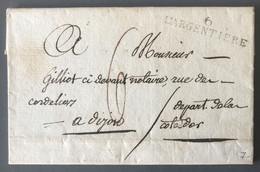 6
L'ARGENTIERE
A
Monsieur
6
Gilliot ci devant notaire, rue des
cordeliers
a dijon
depart. de la
cote d'or
7.